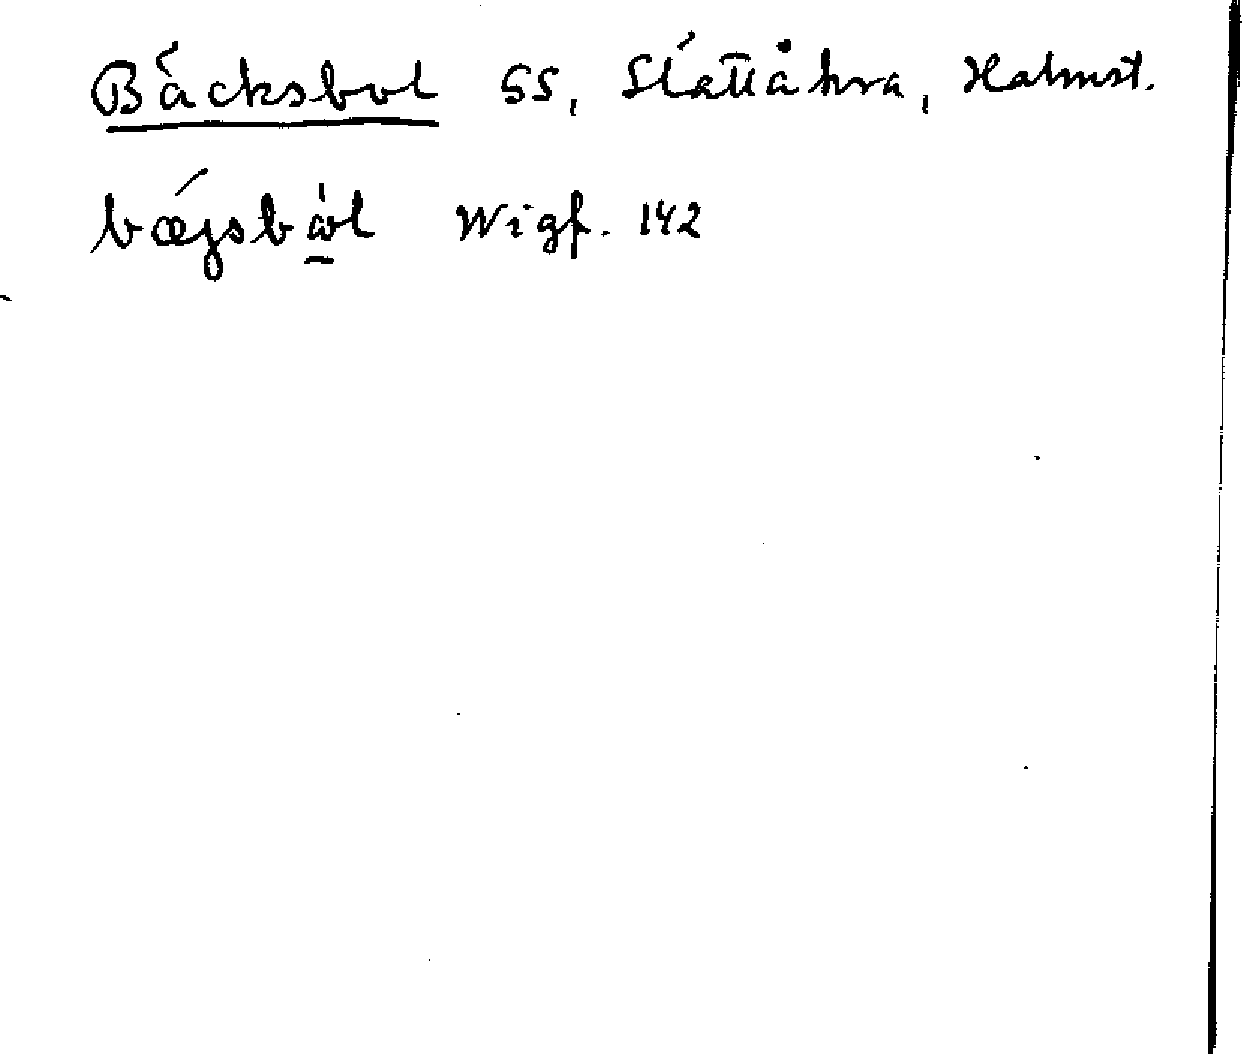 Bäcksbol SS, Slättåkra, Halmst.
bǽgsbål Wigf. 142